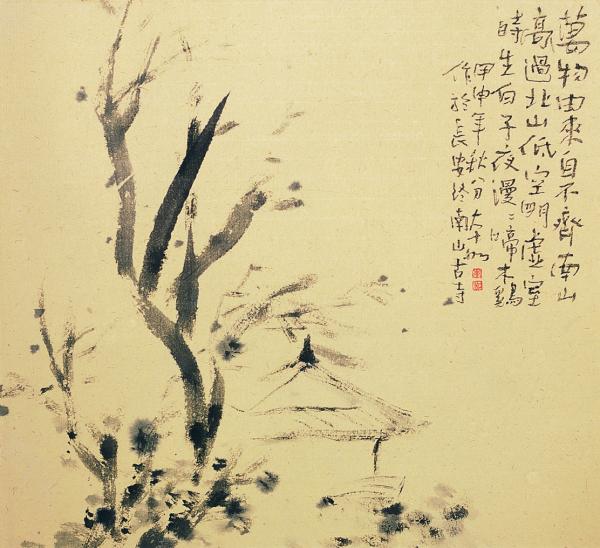 萬物由來自不齊南山
高過北山低空明虛室
時生白子夜漫漫啼木鷄
甲申年秋八分大千
作於長安終南山古寺